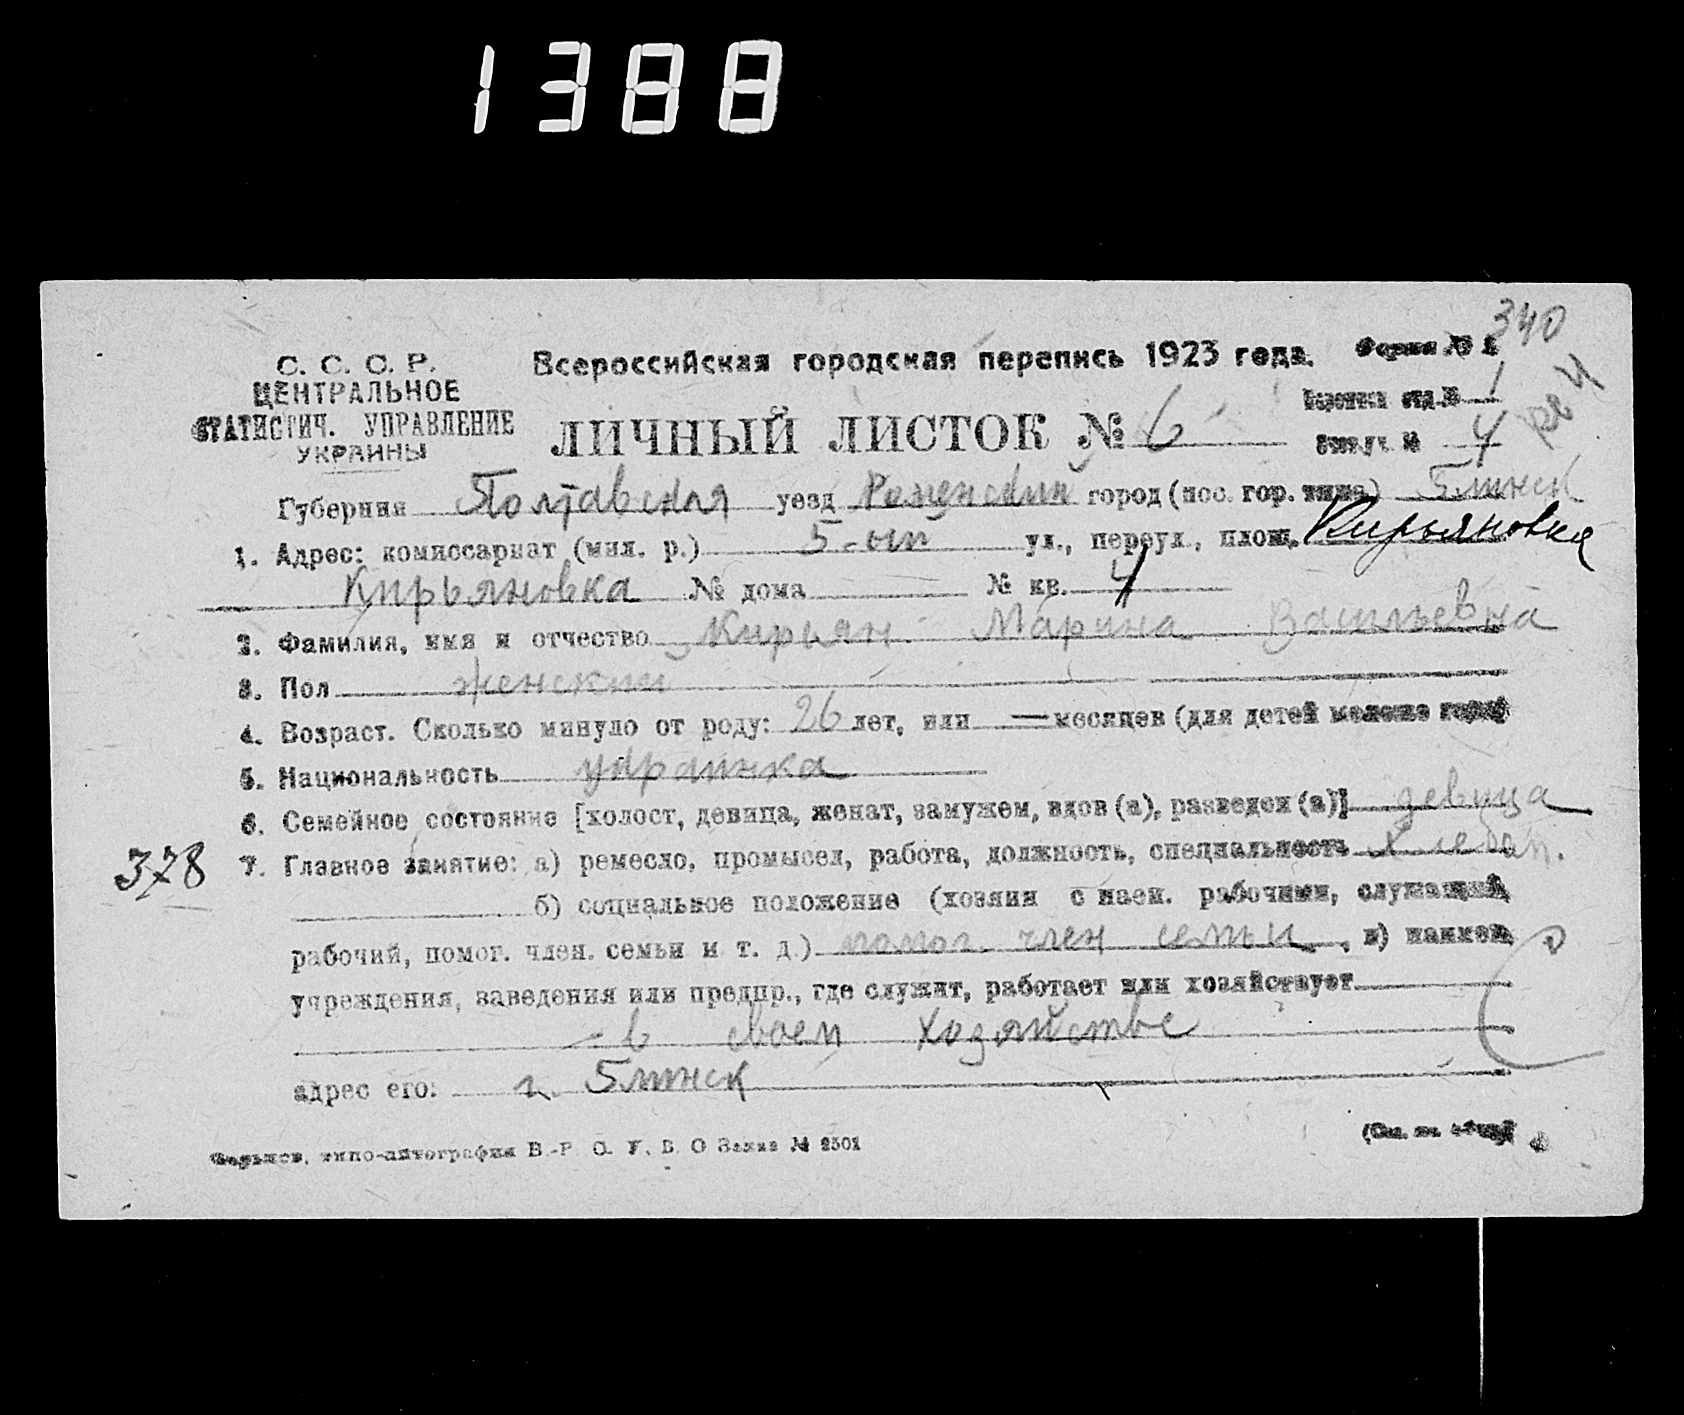 1388
340
С. С. С. Р.
ЦЕНТРАЛЬНОЕ
СТАТИСТИЧ. УПРАВЛЕНИЕ
УКРАИНЫ
Всероссийская городская перепись 1923 года.
Форма №
ЛИЧНЫЙ ЛИСТОК № 6
отд. № 1
№ 4
Губерния Полтавская уезд Роменский город (пос. гор. типа) Глинск
1. Адрес: комиссариат (мил. р.) 5-ый ул., переул., площ. Кирьяновка
Кирьяновка № дома № кв. 4
2. Фамилия, имя и отчество Кирьян Марина Васильевна
3. Пол женский
4. Возраст. Сколько минуло от роду: 26 лет, или — месяцев (для детей моложе года)
5. Национальность украинка
6. Семейное состояние [холост, девица, женат, замужем, вдов (а), разведен (а)] девица
378
7. Главное занятие: а) ремесло, промысел, работа, должность, специальность хлебоп.
б) социальное положение (хозяин с наем. рабочими, служащий,
рабочий, помог. член. семьи и т. д.) помог. член семьи, в) наимен.
учреждения, заведения или предпр., где служит, работает или хозяйствует
- в своем хозяйстве
адрес его: г. Глинск
типо-литография В.-Р. О. У. В. О Заказ № 2501
(См. на